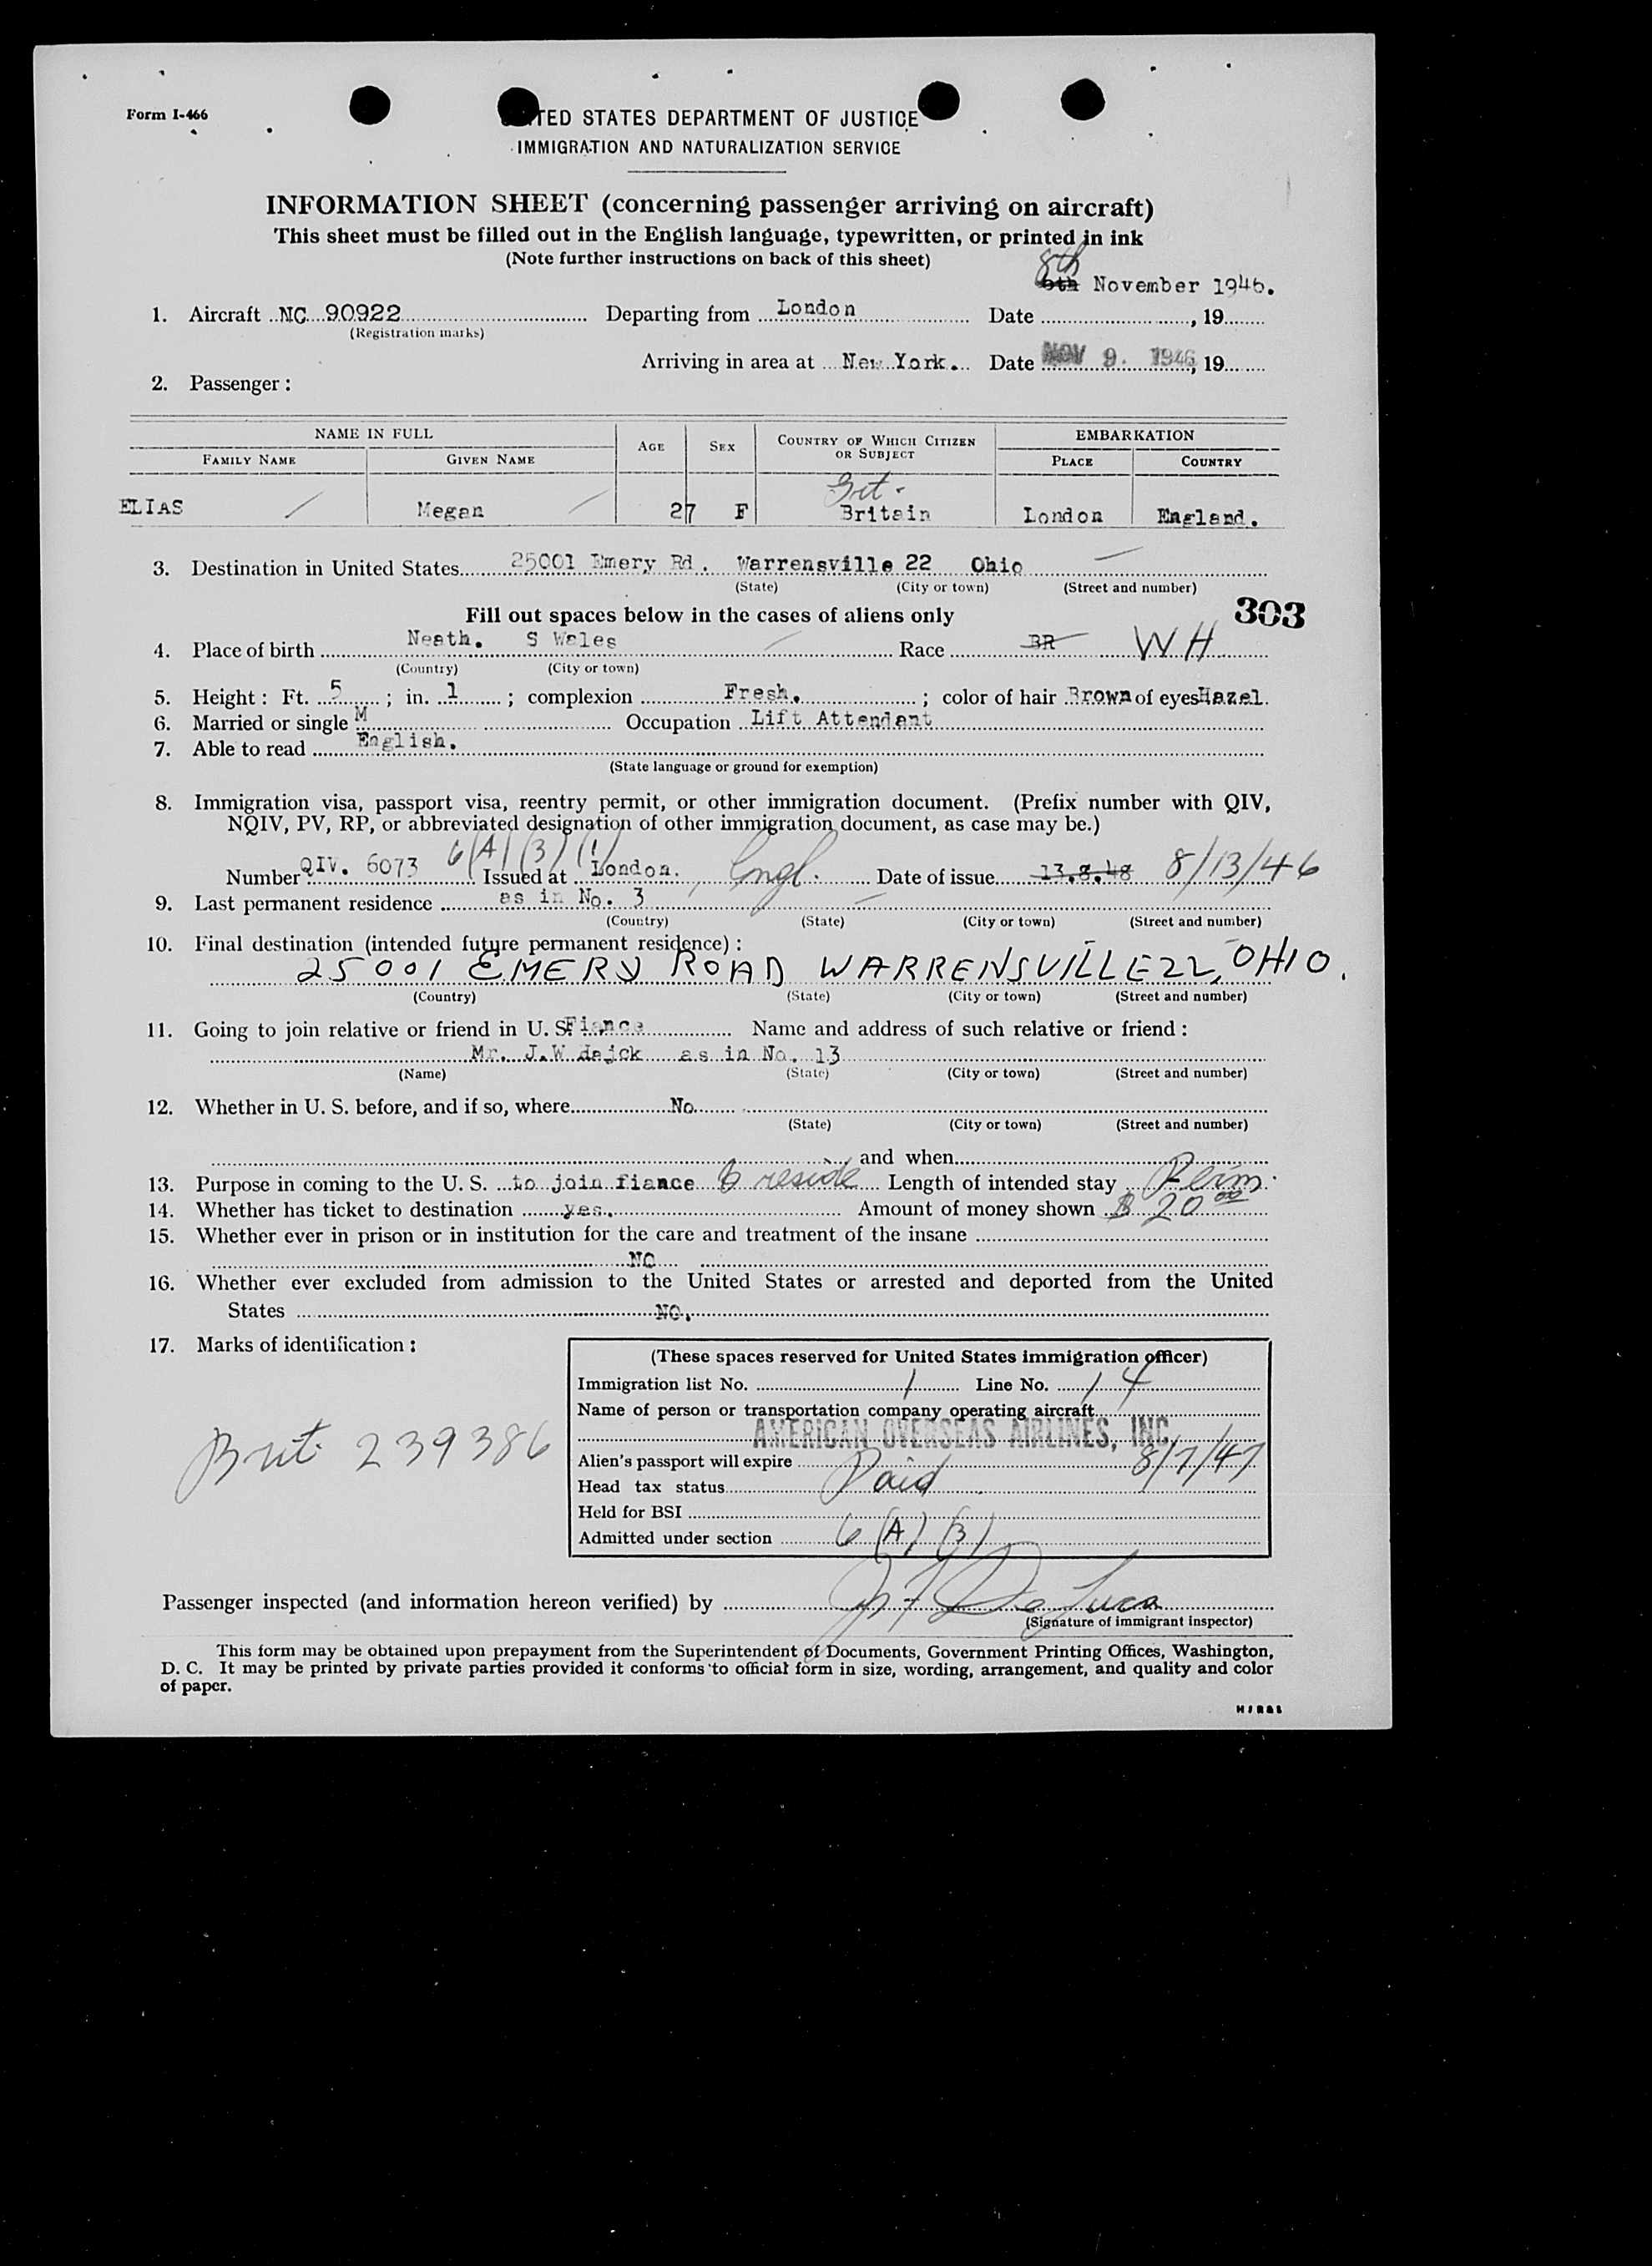 Form I-466
TED STATES DEPARTMENT OF JUSTICE
IMMIGRATION AND NATURALIZATION SERVICE
INFORMATION SHEET (concerning passenger arriving on aircraft)
This sheet must be filled out in the English language, typewritten, or printed in ink
(Note further instructions on back of this sheet)
8th
6th November 1946.
1. Aircraft NC 90922 Departing from London Date , 19
(Registration marks)
Arriving in area at New York. Date NOV 9. 1946, 19
2. Passenger:
NAME IN FULL AGE SEX COUNTRY OF WHICH CITIZEN OR SUBJECT EMBARKATION
FAMILY NAME GIVEN NAME PLACE COUNTRY
Brit.
ELIAS / Megan / 27 F Britain London England.
3. Destination in United States 25001 Emery Rd. Warrensville 22 Ohio
(State) (City or town) (Street and number)
Fill out spaces below in the cases of aliens only 303
4. Place of birth Neath. S Wales Race BR WH
(Country) (City or town)
5. Height: Ft. 5 ; in. 1 ; complexion Fresh. ; color of hair Brown of eyes Hazel.
6. Married or single M Occupation Lift Attendant
7. Able to read English.
(State language or ground for exemption)
8. Immigration visa, passport visa, reentry permit, or other immigration document. (Prefix number with QIV,
NQIV, PV, RP, or abbreviated designation of other immigration document, as case may be.)
6(A)(3)(1)
Number QIV. 6073 Issued at London. Engl. Date of issue 13.8.48 8/13/46
9. Last permanent residence as in No. 3
(Country) (State) (City or town) (Street and number)
10. Final destination (intended future permanent residence):
25001 EMERY ROAD WARRENSVILLE 22, OHIO.
(Country) (State) (City or town) (Street and number)
11. Going to join relative or friend in U. S. Fiance Name and address of such relative or friend:
Mr. J.W dajck as in No. 13
(Name) (State) (City or town) (Street and number)
12. Whether in U. S. before, and if so, where No
(State) (City or town) (Street and number)
and when
13. Purpose in coming to the U. S. to join fiance to reside Length of intended stay Perm.
14. Whether has ticket to destination yes. Amount of money shown $ 20 00
15. Whether ever in prison or in institution for the care and treatment of the insane
NO
16. Whether ever excluded from admission to the United States or arrested and deported from the United
States NO.
17. Marks of identification:
Brit 239386
(These spaces reserved for United States immigration officer)
Immigration list No. 1 Line No. 14
Name of person or transportation company operating aircraft
AMERICAN OVERSEAS AIRLINES, INC.
Alien's passport will expire 8/7/47
Head tax status Paid
Held for BSI
Admitted under section 6(A)(3)
Passenger inspected (and information hereon verified) by De Luca
(Signature of immigrant inspector)
This form may be obtained upon prepayment from the Superintendent of Documents, Government Printing Offices, Washington,
D. C. It may be printed by private parties provided it conforms to official form in size, wording, arrangement, and quality and color
of paper.